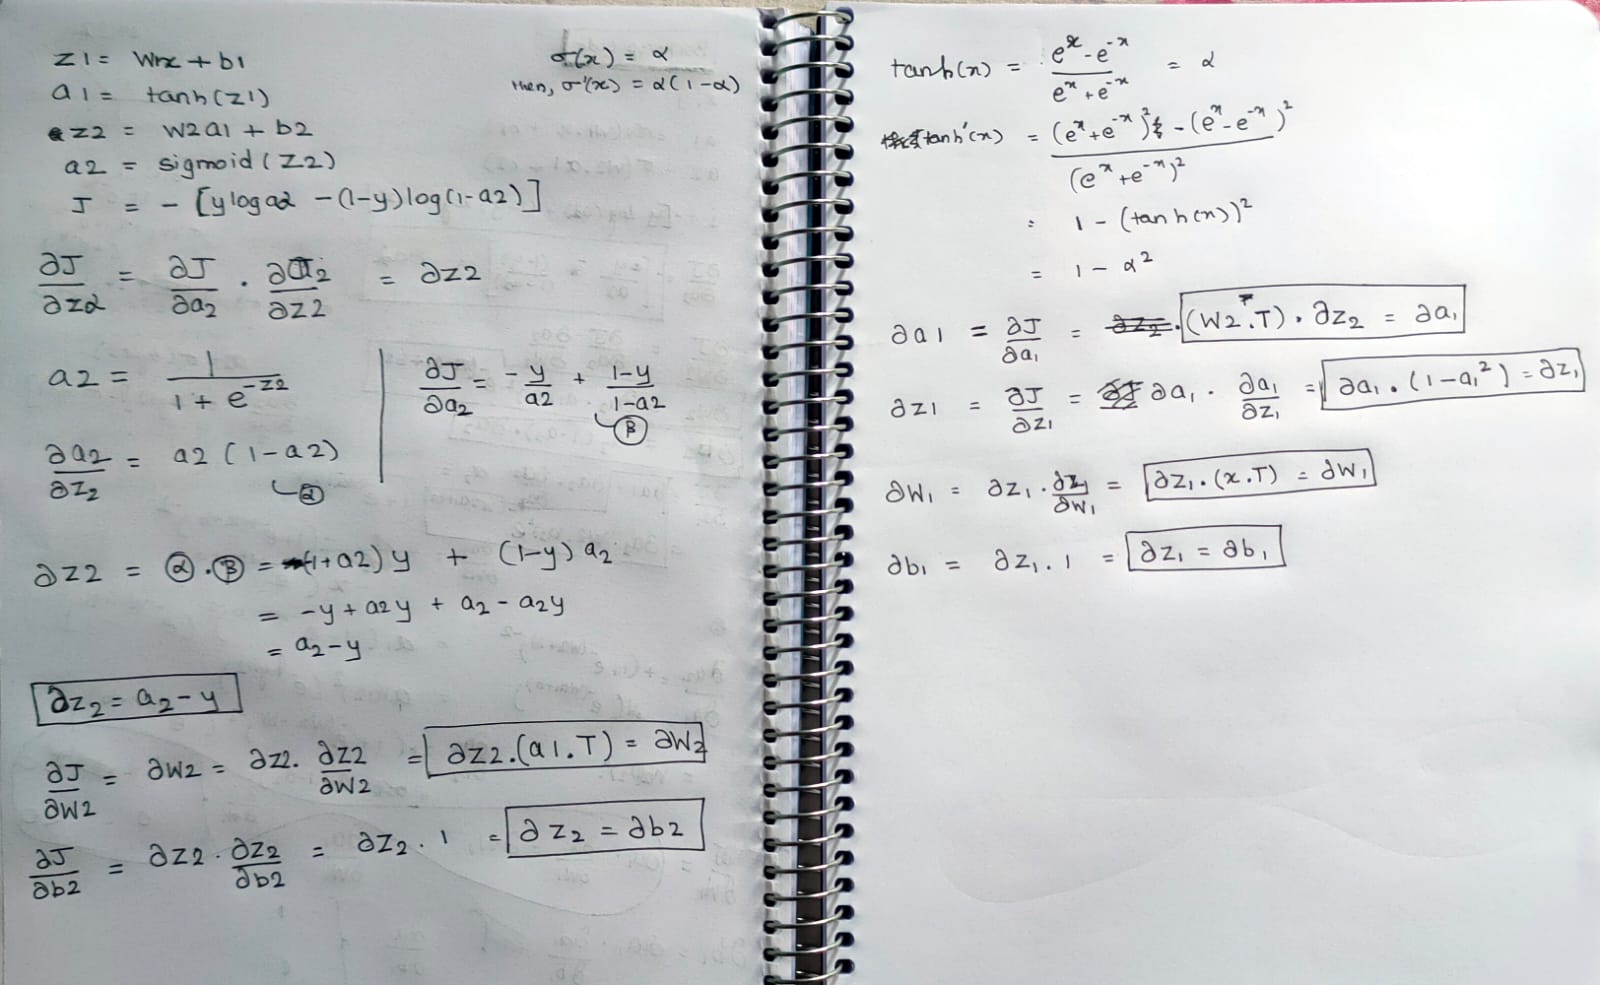 z1 = W1x + b1
σ(x) = α
a1 = tanh(z1)
then, σ'(x) = α(1-α)
z2 = W2a1 + b2
a2 = sigmoid(Z2)
J = - [yloga2 - (1-y)log(1-a2)]
∂J/∂z2 = ∂J/∂a2 . ∂a2/∂z2 = ∂z2
a2 = 1/(1 + e^-z2)
∂J/∂a2 = -y/a2 + (1-y)/(1-a2)
β
∂a2/∂z2 = a2 (1-a2)
α
∂z2 = α.β = (-1+a2)y + (1-y)a2
= -y + a2y + a2 - a2y
= a2-y
∂z2 = a2-y
∂J/∂W2 = ∂W2 = ∂z2. ∂z2/∂W2 = ∂z2.(a1.T) = ∂W2
∂J/∂b2 = ∂z2 . ∂z2/∂b2 = ∂z2 . 1 = ∂z2 = ∂b2
tanh(x) = (e^x - e^-x)/(e^x + e^-x) = α
tanh'(x) = ((e^x + e^-x)^2 - (e^x - e^-x)^2)/(e^x + e^-x)^2
= 1 - (tanh(x))^2
= 1 - α^2
∂a1 = ∂J/∂a1 = (W2.T) . ∂z2 = ∂a1
∂z1 = ∂J/∂z1 = ∂a1 . ∂a1/∂z1 = ∂a1 . (1-a1^2) = ∂z1
∂W1 = ∂z1 . ∂z1/∂W1 = ∂z1 . (x.T) = ∂W1
∂b1 = ∂z1 . 1 = ∂z1 = ∂b1